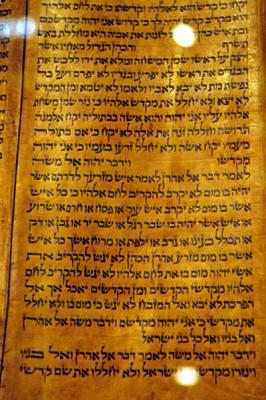 יקחו כי קדש הוא לאלהיו וקדשתו כי את
הוא מקריב קדש יהיה לך כי קדוש אני יהוה מקדשכם
ובת איש כהן כי לזנות את אביה היא מחללת באש
תשרף והכהן הגדול מאחיו אשר
יוצק על ראשו שמן המשחה ומלא את ידו ללבש את
הבגדים את ראשו לא יפרע ובגדיו לא יפרם ועל כל
נפשת מת לא יבא לאביו ולאמו לא יטמא ומן המקדש
לא יצא ולא יחלל את מקדש אלהיו כי נזר שמן משחת
אלהיו עליו אני יהוה והוא אשה בבתוליה יקח אלמנה
וגרושה וחללה זנה את אלה לא יקח כי אם בתולה
מעמיו יקח אשה ולא יחלל זרעו בעמיו כי אני יהוה
מקדשו וידבר יהוה אל משה
לאמר דבר אל אהרן לאמר איש מזרעך לדרתם אשר
יהיה בו מום לא יקרב להקריב לחם אלהיו כי כל איש
אשר בו מום לא יקרב איש עור או פסח או חרם או שרוע
או איש אשר יהיה בו שבר רגל או שבר יד או גבן או דק
או תבלל בעינו או גרב או ילפת או מרוח אשך כל איש
אשר בו מום מזרע אהרן הכהן לא יגש להקריב את
אשי יהוה מום בו את לחם אלהיו לא יגש להקריב לחם
אלהיו מקדשי הקדשים ומן הקדשים יאכל אך אל
הפרכת לא יבא ואל המזבח לא יגש כי מום בו ולא יחלל
את מקדשי כי אני יהוה מקדשם וידבר משה אל אהרן
ואל בניו ואל כל בני ישראל
וידבר יהוה אל משה לאמר דבר אל אהרן ואל בניו
וינזרו מקדשי ישראל ולא יחללו את שם קדשי